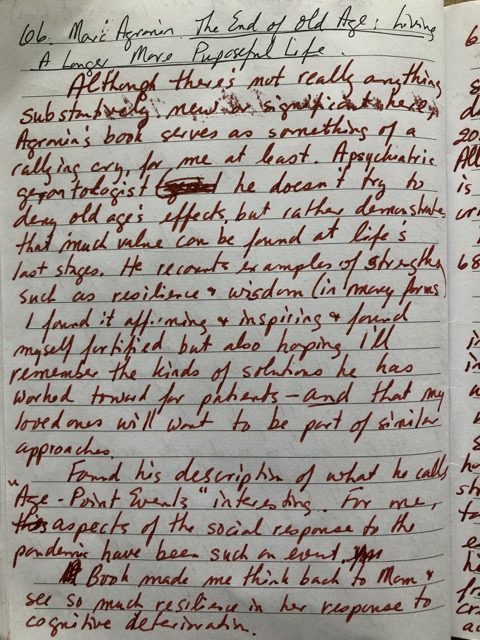 66. Marc Agronin The End of Old Age: Living
A Longer More Puposeful Life.
Although there's not really anything
substantively new or significant here,
Agronin's book serves as something of a
rallying cry, for me at least. A psychiatric
gerontologist he doesn't try to
deny old age's effects, but rather demonstrate
that much value can be found at life's
last stages. He recounts examples of strengths
such as resilience & wisdom (in many forms)
I found it affirming & inspiring & found
myself fortified but also hoping I'll
remember the kinds of solutions he has
worked toward for patients - and that my
loved ones will want to be part of similar
approaches.
Found his description of what he calls
"Age-Point Events" interesting. For me,
aspects of the social response to the
pandemic have been such an event.
Book made me think back to Mom &
see so much resilience in her response to
cognitive deterioration.
6
20
All
is
68